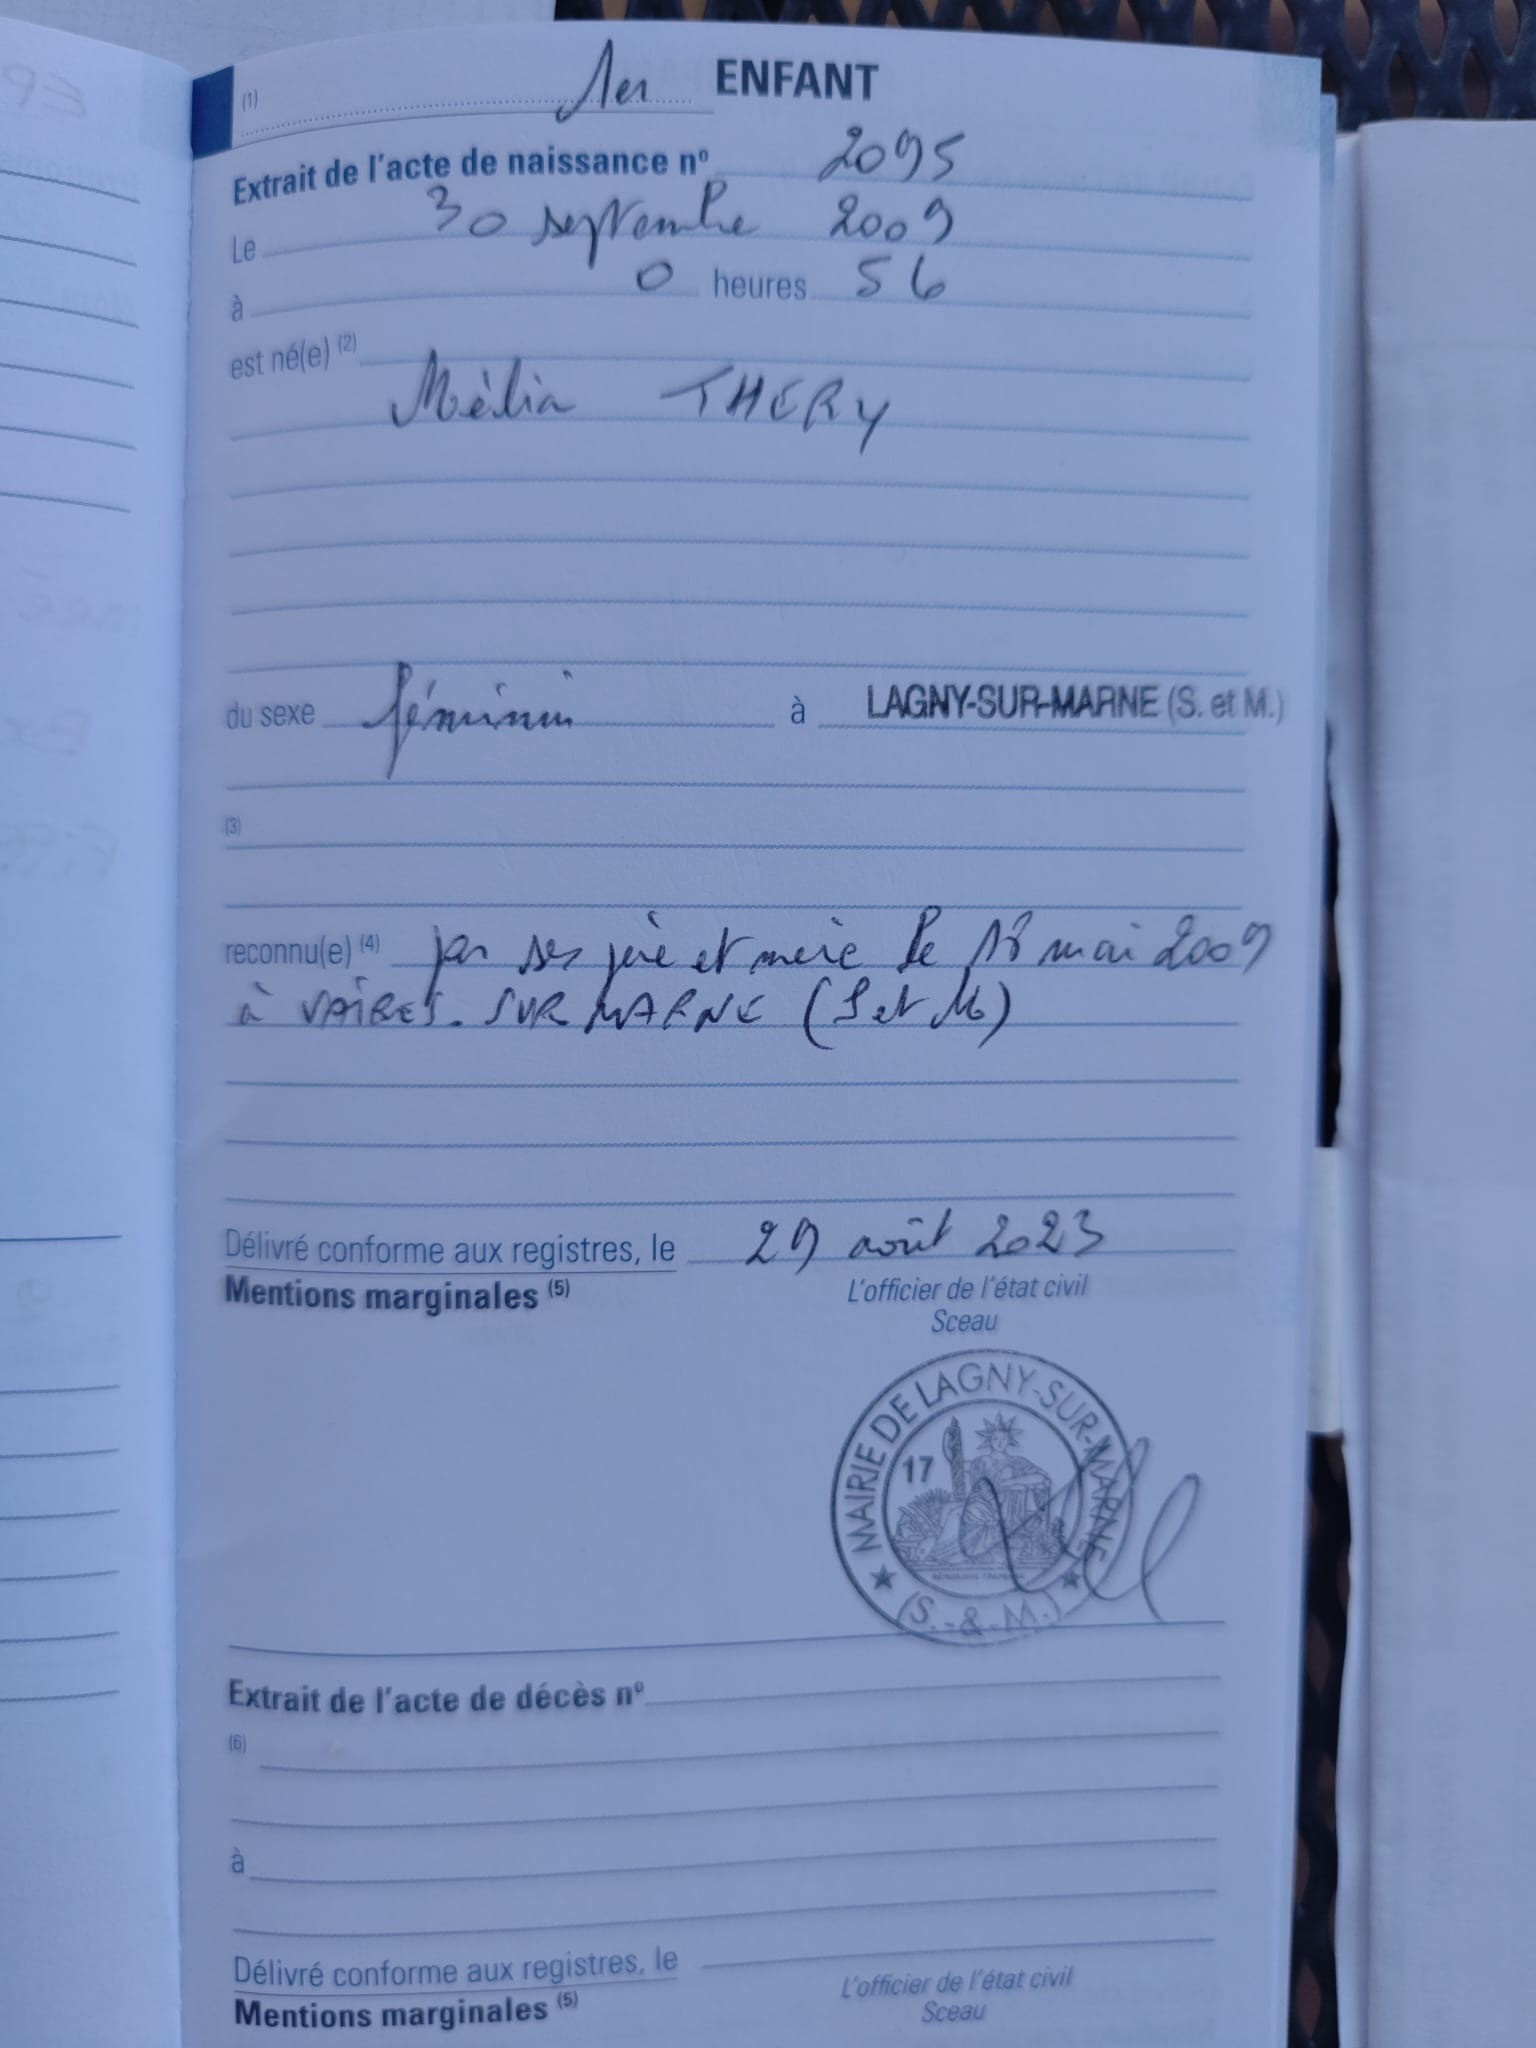 (1) 1er ENFANT
Extrait de l'acte de naissance nº 2095
Le 30 septembre 2009
à 0 heures 56
est né(e) (2)
Mélia THERY
du sexe féminin à LAGNY-SUR-MARNE (S. et M.)
(3)
reconnu(e) (4) par ses père et mère le 18 mai 2009
à VAIRES-SUR MARNE (S et M)
Délivré conforme aux registres, le 29 août 2023
Mentions marginales (5)
L'officier de l'état civil
Sceau
MAIRIE DE LAGNY-SUR-MARNE
17
(S.-&-M.)
Extrait de l'acte de décès nº
(6)
à
Délivré conforme aux registres, le
Mentions marginales (5)
L'officier de l'état civil
Sceau